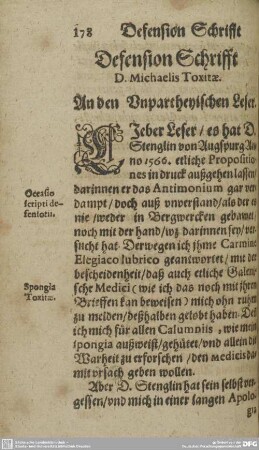 178 Defension Schrifft
Defension Schrifft
D. Michaelis Toxitæ.
An den Vnpartheyischen Leser.
LIeber Leser / es hat D.
Stenglin von Augspurg An
no 1566. etliche Propositio-
nes in druck außgehen lassen /
darinnen er das Antimonium gar ver
dampt / doch auß vnverstand / als der es
nie / weder in Bergwercken gebawet /
noch mit der hand / wz darinnen sey / ver-
sucht hat Derwegen ich jhme Carmine
Elegiaco lubrico geantwortet / mit der
bescheidenheit / daß auch etliche Gale-
sche Medici (wie ich das noch mit jhren
Brieffen kan beweisen) mich ohn ruhm
zu melden / deßhalben gelobt haben. Deß
ich mich für allen Calumniis, wie mein
spongia außweist / gehütet / vnd allein die
Warheit zu erforschen / den Medicis da-
mit vrsach geben wollen.
Aber D. Stenglin hat sein selbst ver-
gessen / vnd mich in einer langen Apolo-
gia
Occasio
scripti de-
fensioni.
Spongia
Toxitæ.